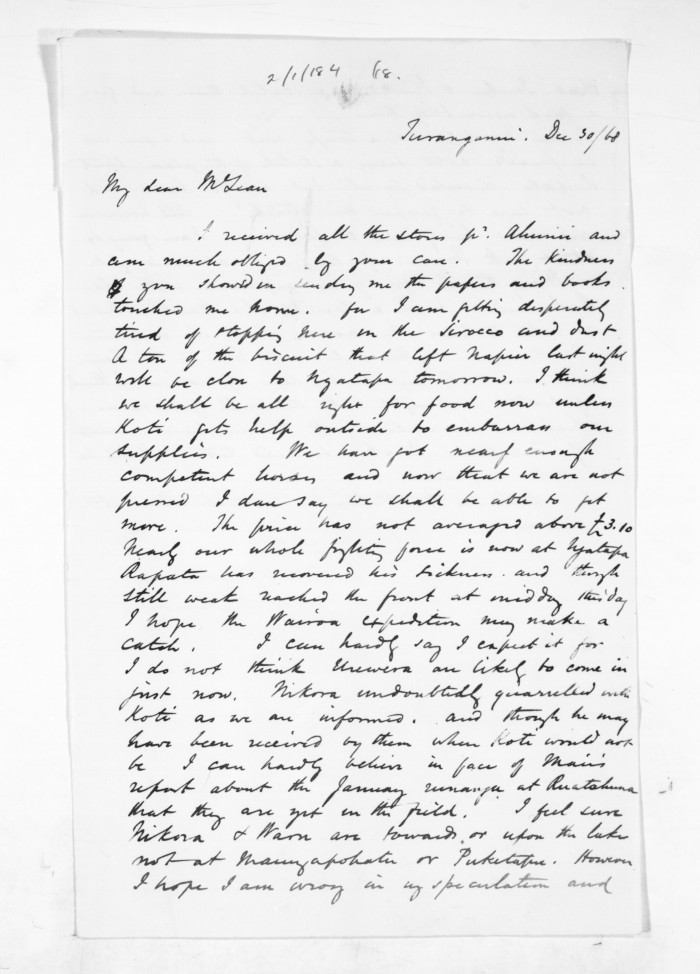 2/1/184 68.
Turanganui. Dec 30/68
My dear McLean
I received all the stores pr. Ahuriri and
am much obliged by your care. The kindness
you showed in sending me the papers and books
touched me home. for I am getting desperately
tired of stopping here in the Sirocco and dust
A ton of the biscuit that left Napier last night
will be close to Ngatapa tomorrow. I think
we shall be all right for food now unless
Koti gets help outside to embarrass our
supplies. We have got nearly enough
competent horses and now that we are not
pressed I dare say we shall be able to get
more. The price has not averaged above £3.10
Nearly our whole fighting force is now at Ngatapa
Rapata has recovered his sickness. and though
still weak reached the front at midday this day
I hope the Wairoa expedition may make a
catch. I can hardly say I expect it for
I do not think Urewera are likely to come in
just now. Nikora undoubtedly quarrelled with
Koti as we are informed. and though he may
have been received by them when Koti would not
be I can hardly believe in face of Maii's
report about the January runanga at Ruatahuna
that they are yet in the field. I feel sure
Nikora & Waru are towards, or upon the lake
not at Maungapohatu or Puketapu. However
I hope I am wrong in my speculation and